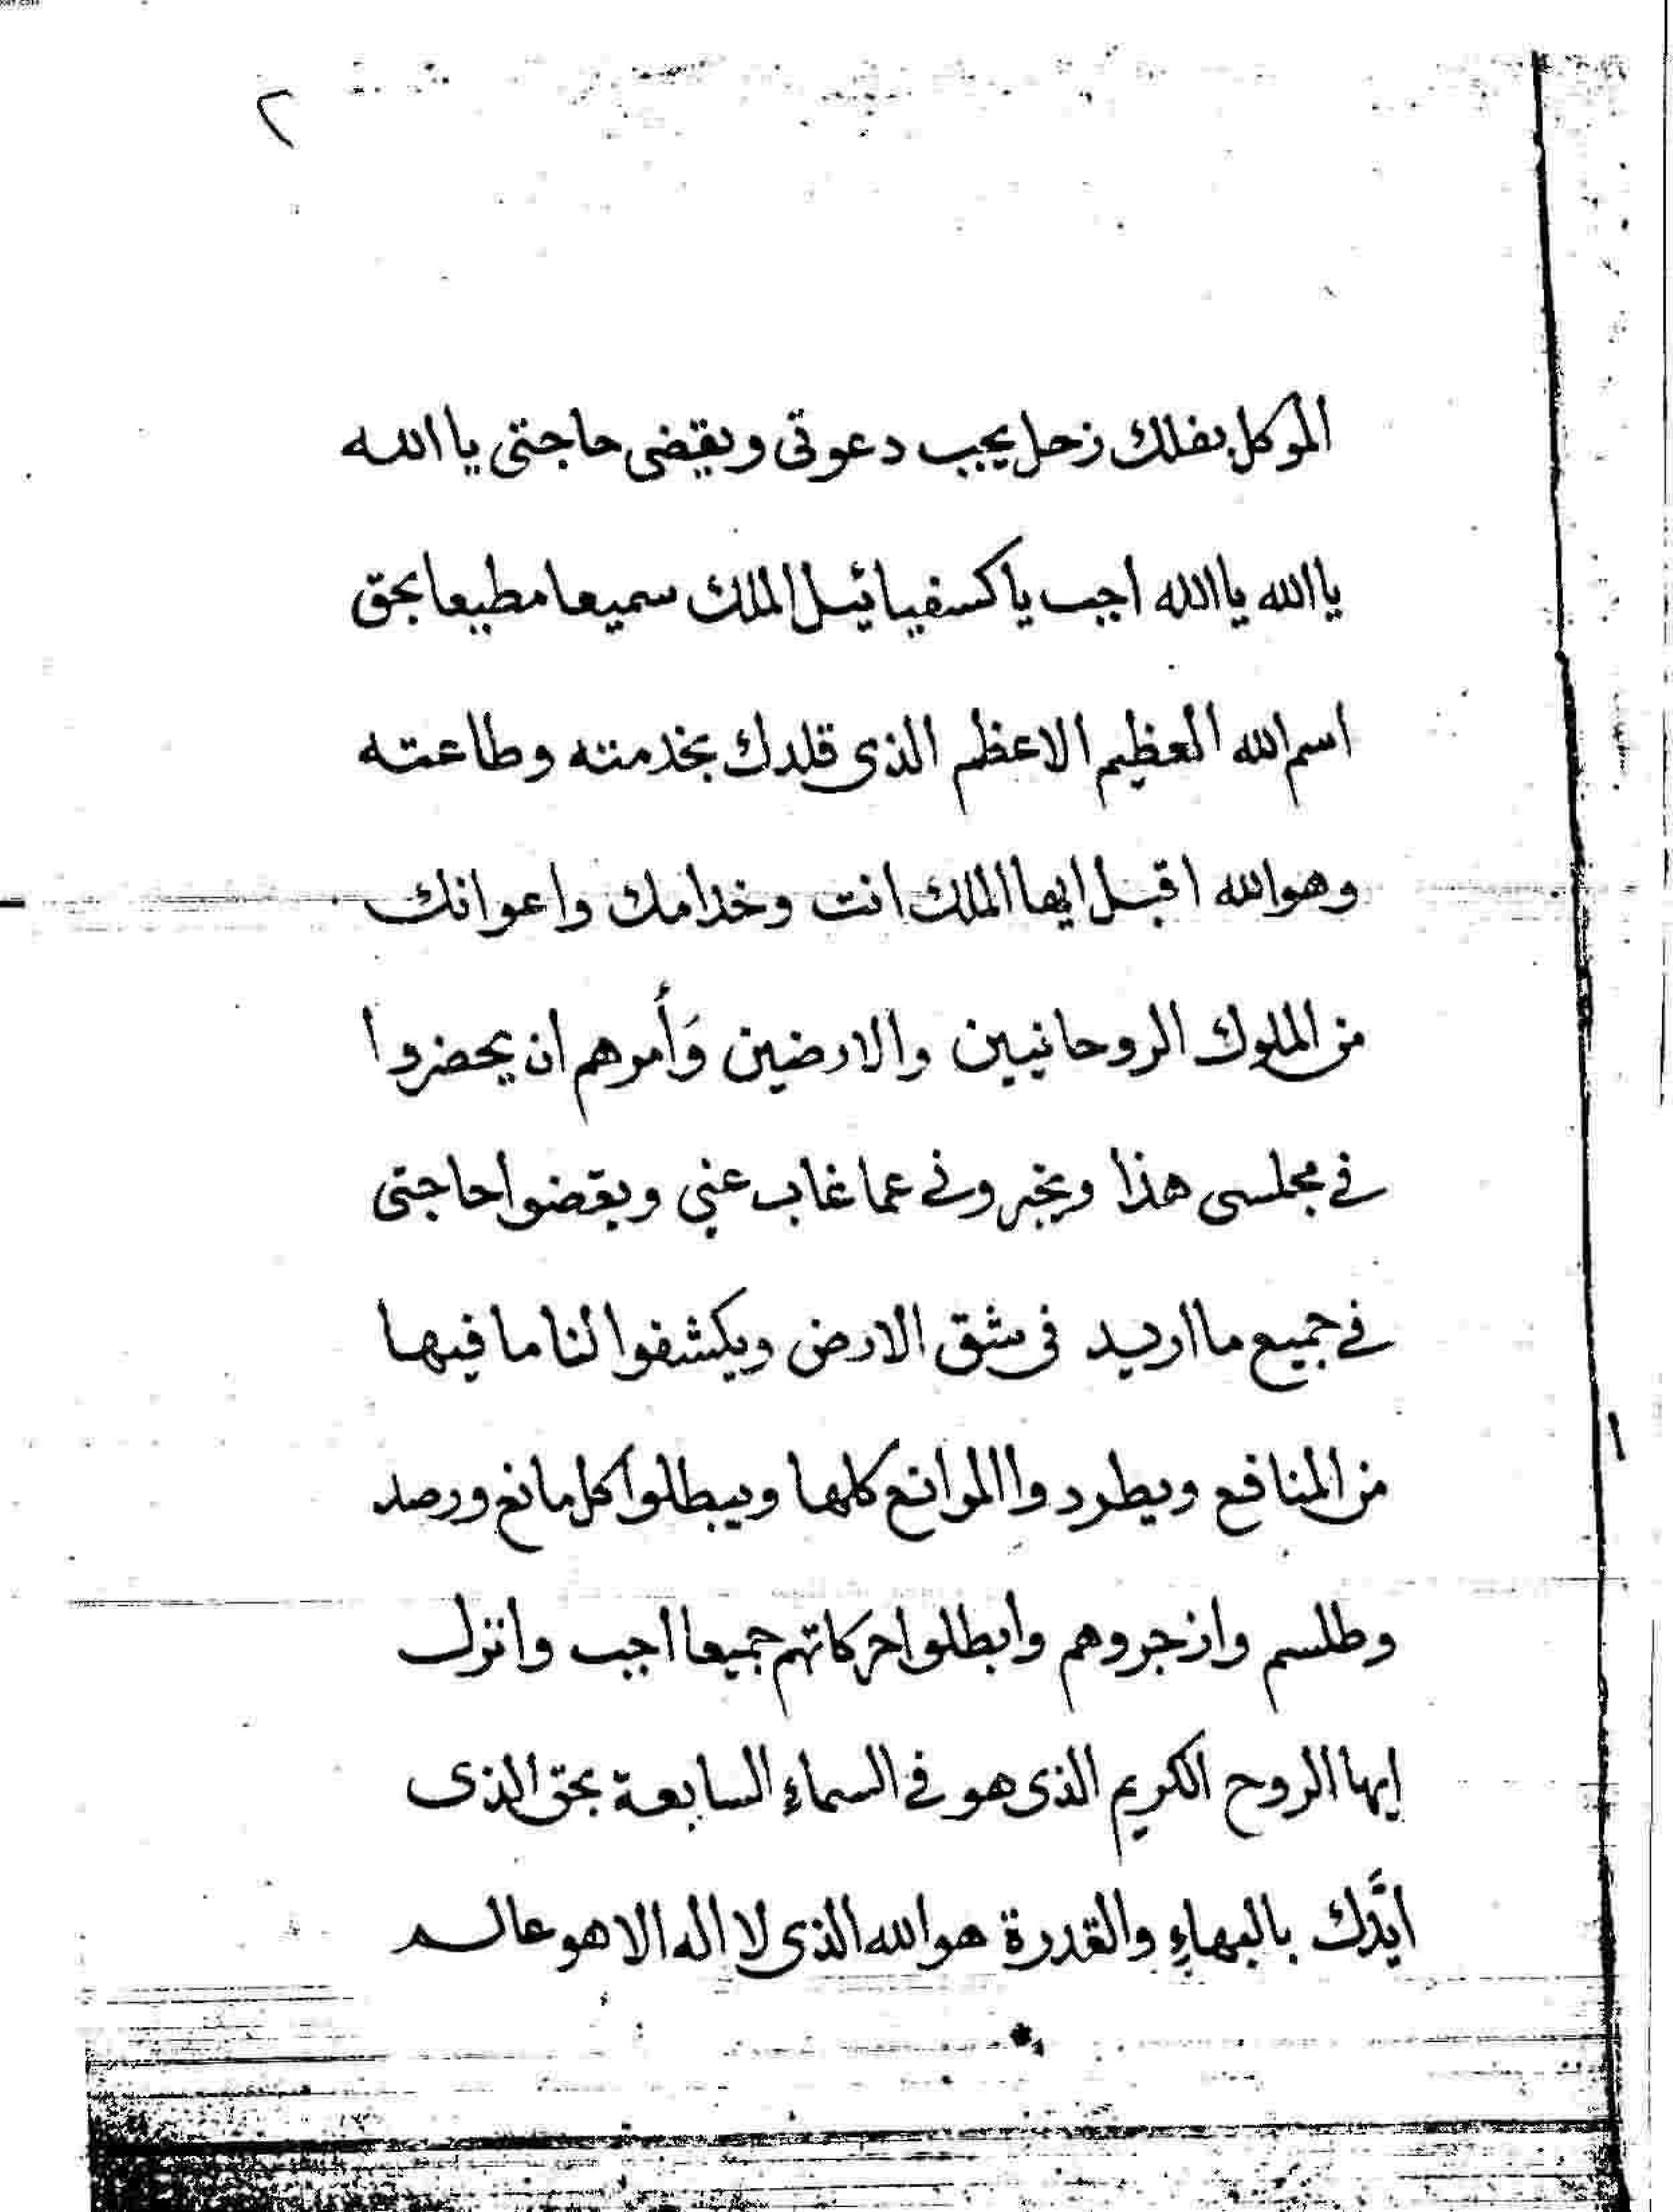 ٢
الموكل بفلك زحل يجب دعوتى ويقضى حاجتى يا الله
يا الله يا الله اجب يا كسفيائيل الملك سميعا مطيعا بحق
اسم الله العظيم الاعظم الذى قلدك بخدمته وطاعته
وهو الله اقبل ايها الملك انت وخدامك واعوانك
من الملوك الروحانيين والارضين وَأمرهم ان يحضروا
فى مجلسى هذا ويخبرونى عما غاب عنى ويقضوا حاجتى
فى جميع ما اريد فى شق الارض ويكشفوا لنا ما فيها
من المنافع ويطردوا الموانع كلها ويبطلوا كل مانع ورصد
وطلسم وازجروهم وابطلوا حركاتهم جميعا اجب وانزل
ايها الروح الكريم الذى هو فى السماء السابعة بحق الذى
ايَّدك بالبهاءِ والقدرة هو الله الذى لا اله الا هو عالم